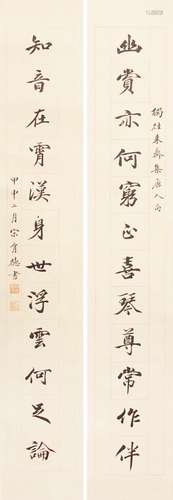 獨往來齋集唐人句
幽賞亦何窮正喜琴尊常作伴
知音在霄漢身世浮雲何足論
甲申二月宗舜年書